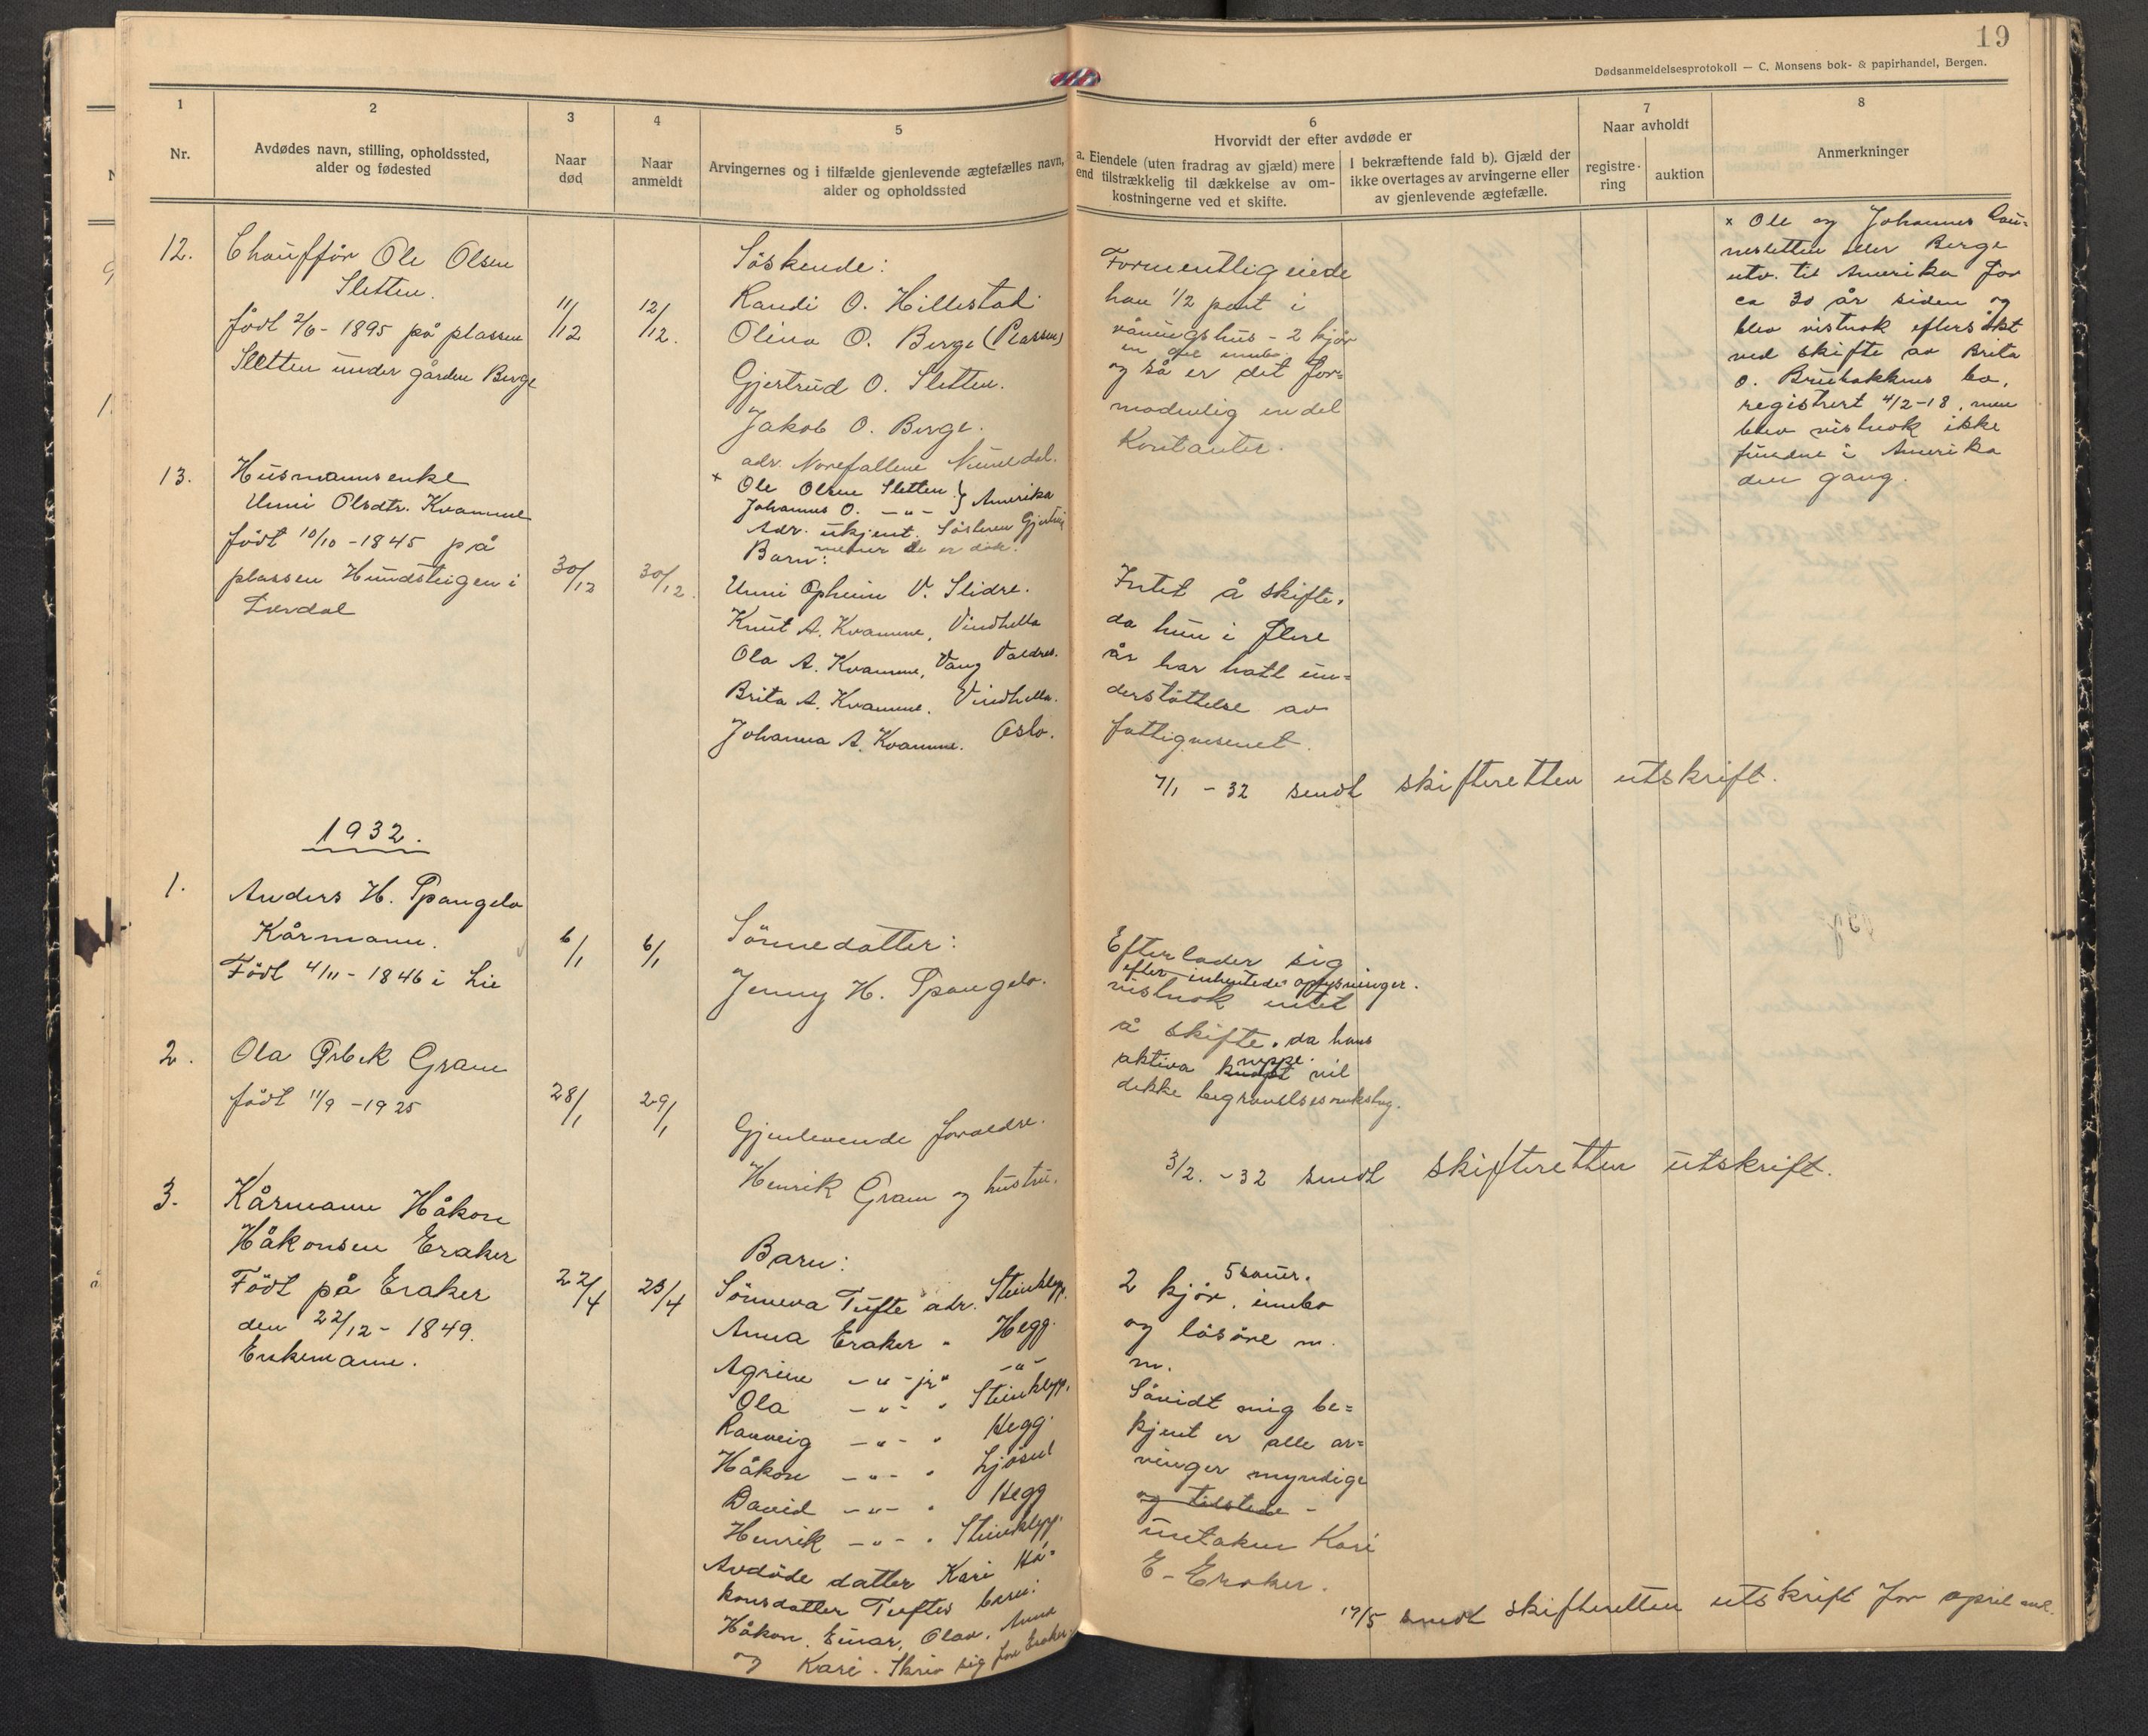 19
Dødsanmeldelsesprotokoll — C. Monsens bok- & papirhandel, Bergen.
1
Nr.
2
Avdødes navn, stilling, opholdssted,
alder og fødested
3
Naar
død
4
Naar
anmeldt
5
Arvingernes og i tilfælde gjenlevende ægtefælles navn,
alder og opholdssted
6
Hvorvidt der efter avdøde er
a. Eiendele (uten fradrag av gjæld) mere
end tilstrækkelig til dækkelse av om-
kostningerne ved et skifte.
I bekræftende fald b). Gjæld der
ikke overtages av arvingerne eller
av gjenlevende ægtefælle.
7
Naar avholdt
registre-
ring
auktion
8
Anmerkninger
12.
Chauffør Ole Olsen
Sletten.
født 2/6 - 1895 på plassen
Sletten under gården Berge
11/12
12/12.
Søskende:
Randi O. Hillestad
Olina O. Berge (Plassen)
Gjertrud O. Sletten.
Jakob O. Berge.
adr. Norefallene Numedal.
x Ole Olsen Sletten } Amerika
Johannes O. -"-
Adr. ukjent. Søsteren Gjertrud
mener de er døde.
Formentlig eiede
han 1/2 part i
våningshus - 2 kjør
en del innbo.
og så er det for=
modenlig endel
Kontanter.
x Ole og Johannes
nesletten eller Berge
utv. til Amerika for
ca 30 år siden og
blev vistnok eftersøkt
ved skifte av Brita
O. Brubakkens bo,
registrert 4/2-18, men
blev vistnok ikke
fundne i Amerika
den gang.
13.
Husmannsenke
Unni Olsdtr. Kvamme
født 10/10 - 1845 på
plassen Hundsteigen i
Lærdal
30/12
30/12.
Barn:
Unni Opheim V. Slidre.
Knut A. Kvamme, Vindhella
Ola A. Kvamme, Vang Valdres.
Brita A. Kvamme. Vindhella.
Johanna A. Kvamme. Oslo.
Intet å skifte,
da hun i flere
år har hatt un=
derstøttelse av
fattigvesenet.
7/1 - 32 sendt skifteretten utskrift.
1932.
1.
Anders H. Spangelo
Kårmann.
Født 4/11 - 1846 i Lie
6/1
6/1
Sønnedatter:
Jenny H. Spangelo.
Efterlader sig
efter inhentede oplysninger.
vistnok intet
å skifte. da hans
aktiva knapt neppe. vil
dekke begravelsesomkstng.
2.
Ola Gram
født 11/9 - 1925
28/1
29/1
Gjenlevende foreldre.
Henrik Gram og hustru.
3/2. - 32 sendt skifteretten utskrift.
3.
Kårmann Håkon
Håkonsen Eraker
Født på Eraker
den 22/12 - 1849.
Enkemann.
22/4
23/4
Barn:
Sønneva Tufte adr. Steinklepp.
Anna Eraker " Hegg.
Agrine -"- jr " -"-
Ola -"- " Steinklepp.
Ranveig -"- " Hegg.
Håkon -"- " Ljøsne
David -"- " Hegg
Henrik -"- " Steinklepp.
Avdøde datter Kari Hå=
konsdatter Tuftes barn:
Håkon, Einar, Olav, Anna
og Kari. Skriv sig for Eraker.
2 kjør, 5 sauer. innbo
og løsøre m.
m.
Såvidt mig be=
kjent er alle ar=
vinger myndige
og tilstede -
untaken Kari
E- Eraker.
17/5 sendt skifteretten utskrift for april md.